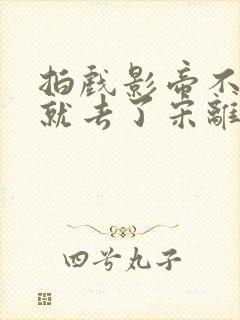 拍戏影帝不
就去了宋離
四兮丸子